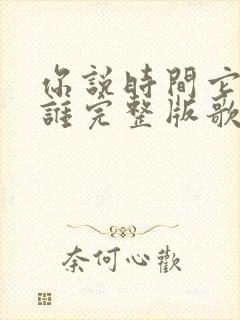 你說時間它
誰完整版歌
奈何心歡